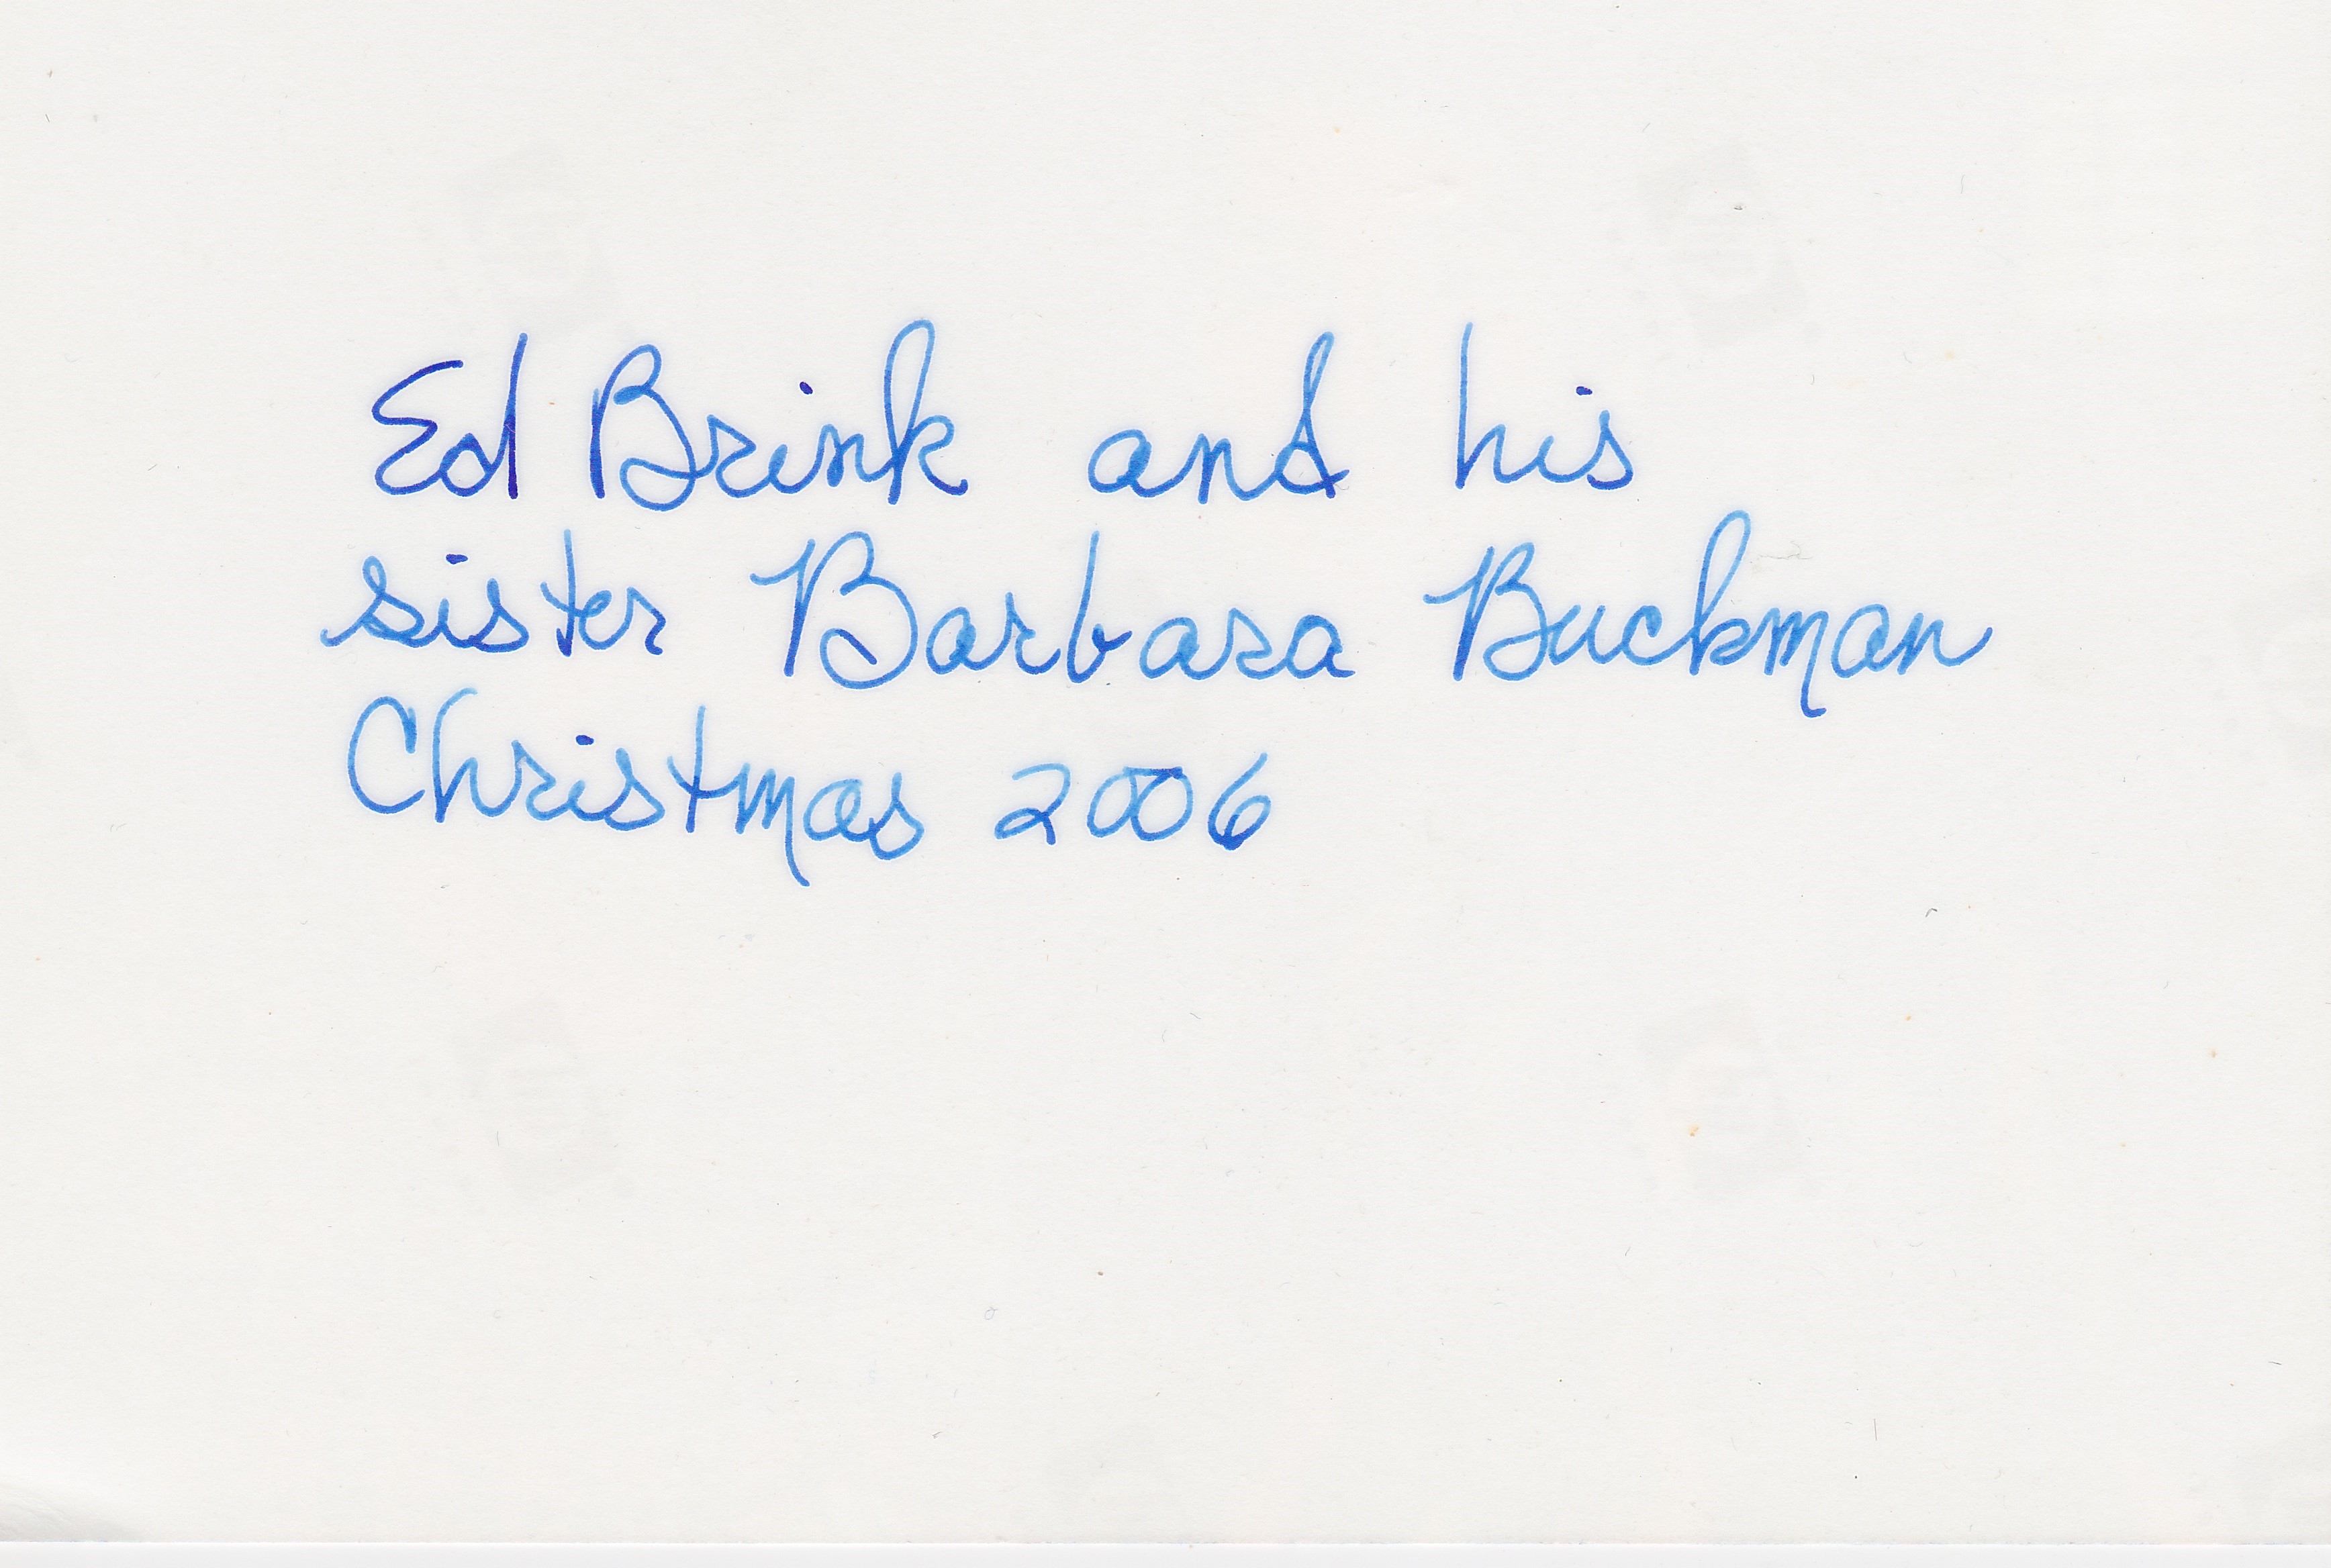 Ed Brink and his
sister Barbara Buckman
Christmas 2006